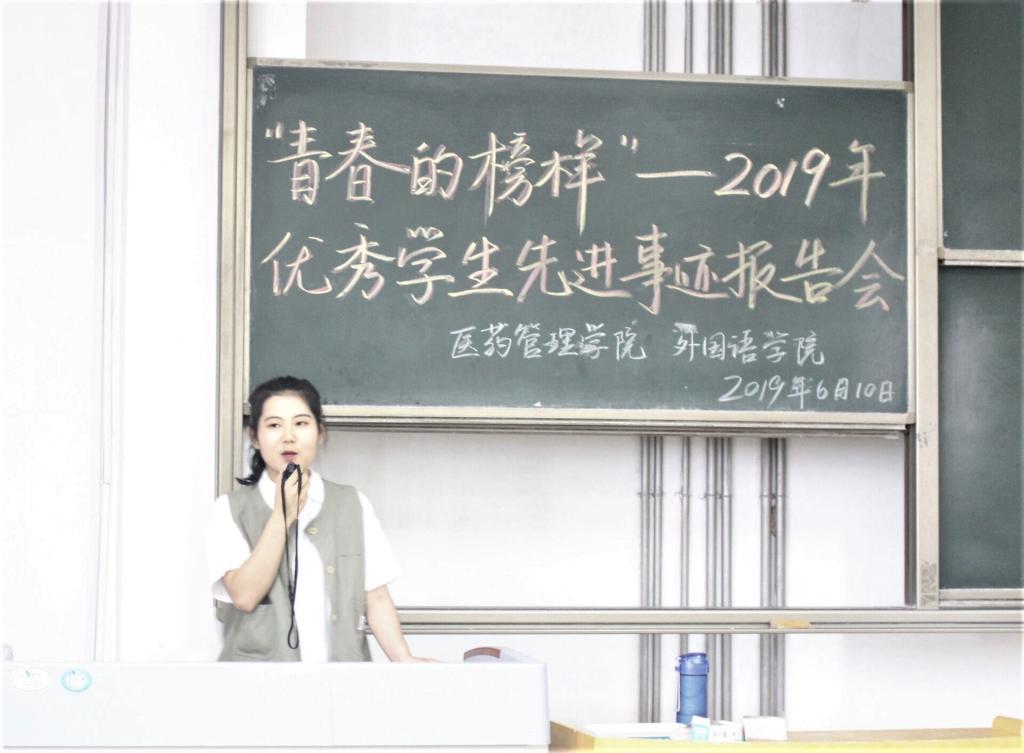 “青春的榜样”—2019年
优秀学生先进事迹报告会
医药管理学院 外国语学院
2019年6月10日